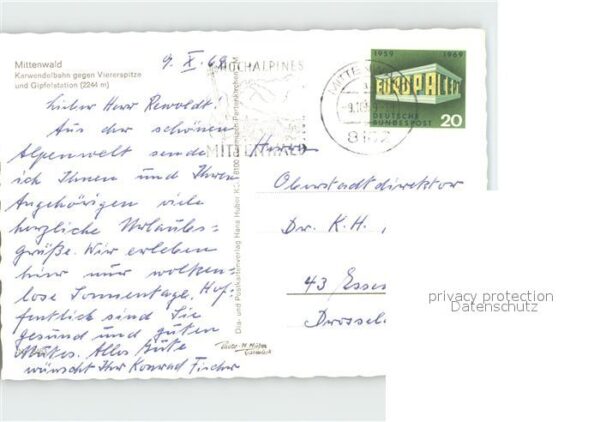 Mittenwald
Karwendelbahn gegen Viererspitze
und Gipfelstation (2244 m)
9. X. 69
Lieber Herr Rewoldt!
Aus der schönen
Alpenwelt sende
ich Ihnen und Ihren
Angehörigen viele
herzliche Urlaubs-
grüße. Wir erleben
hier nur wolken-
lose Sonnentage. Hof-
fentlich sind Sie
gesund und guten
Mutes. Alles Gute
wünscht Ihr Konrad Fischer
Dia- und Postkartenverlag Hans Huber 8100 Garmisch-Partenkirchen
HOCHALPINES
MITTENWALD
MITTENWALD
8102
1959 1969
EUROPA CEPT
DEUTSCHE
BUNDESPOST
20
Herrn
Oberstadtdirektor
Dr. K. H.,
43 Essen
Drossel.
privacy protection
Datenschutz